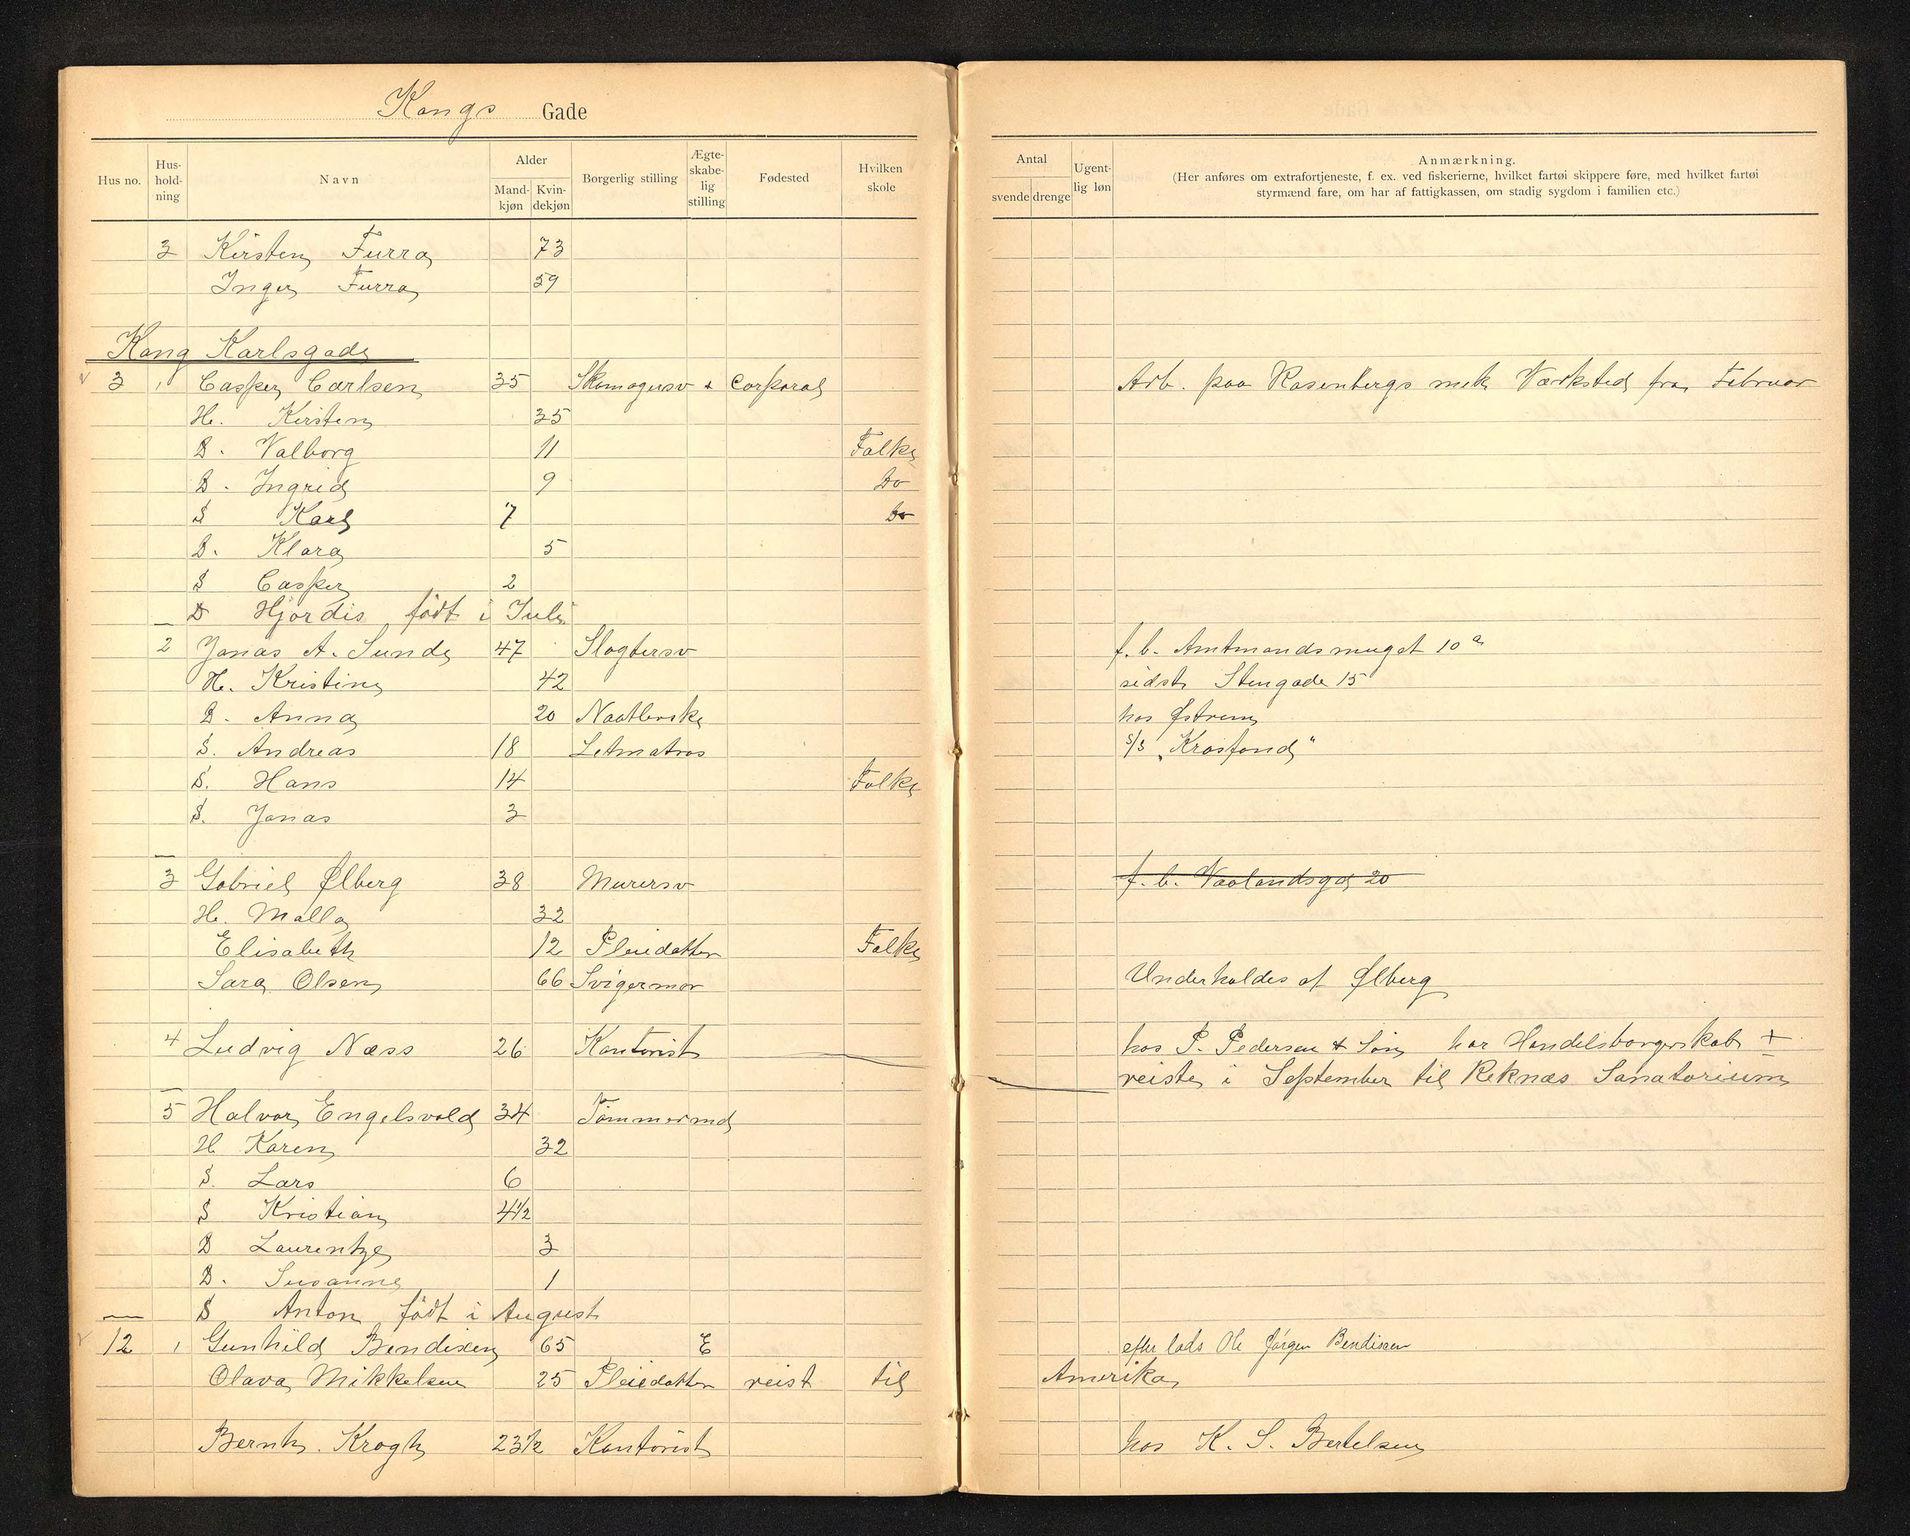 Kongs Gade
Hus no. Hus-hold-ning Navn Alder Mand-kjøn Kvin-dekjøn Borgerlig stilling Ægte-skabe-lig stilling Fødested Hvilken skole Antal svende drenge Ugent-lig løn Anmærkning.
(Her anføres om extrafortjeneste, f. ex. ved fiskerierne, hvilket fartøi skippere føre, med hvilket fartøi
styrmænd fare, om har af fattigkassen, om stadig sygdom i familien etc.)
3 Kirsten Furra 73
Inger Furra 59
Kong Karlsgade
3 1 Casper Carlsen 35 Skomagersv & Corporal Arb. paa Rosenbergs mek Værksted fra Februar
H. Kirsten 35
D. Valborg 11 Folke
D. Ingrid 9 Do
S Karl 7 Do
D. Klara 5
S Casper 2
D Hjordis födt i Juli
2 Jonas A. Sunde 47 Slagtersv f. b. Amtmandsmuget 10 a
H. Kristine 42 sidst Stengade 15
D. Anna 20 Naatlerske hos Østrem
S. Andreas 18 Letmatros S/S "Krosfond"
S. Hans 14 Folke
S. Jonas 3
3 Gabriel Ølberg 38 Murersv f. b. Vaalandsgd 20
H. Malla 32
Elisabeth 12 Pleiedatter Folke
Sara Olsen 66 Svigermor Underholdes af Ølberg
4 Ludvig Næss 26 Kontorist hos P. Pedersen & Søn har Handelsborgerskab +
reiste i September til Reknæs Sanatorium
5 Halvor Engelsvold 34 Tömmermd
H Karen 32
S. Lars 6
S Kristian 4 1/2
D Laurentze 3
D. Susanne 1
S Anton födt i August
12 1 Gunhild Bendixen 65 E efter lods Ole Jörgen Bendixen
Olava Mikkelsen 25 Pleiedatter reist til Amerika
Bernh. Krogh 23 1/2 Kontorist hos K. S. Bertelsen